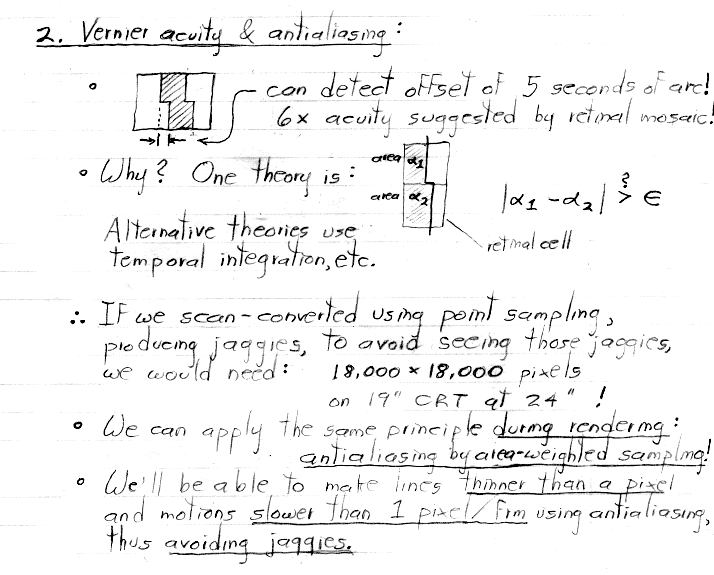 2. Vernier acuity & antialiasing:
• can detect offset of 5 seconds of arc!
6x acuity suggested by retinal mosaic!
• Why? One theory is:
area α1
area α2
|α1 - α2| >? ∈
retinal cell
Alternative theories use
temporal integration, etc.
∴ If we scan-converted using point sampling,
producing jaggies, to avoid seeing those jaggies,
we would need: 18,000 × 18,000 pixels
on 19" CRT at 24" !
• We can apply the same principle during rendering:
antialiasing by area-weighted sampling!
• We'll be able to make lines thinner than a pixel
and motions slower than 1 pixel/frm using antialiasing,
thus avoiding jaggies.